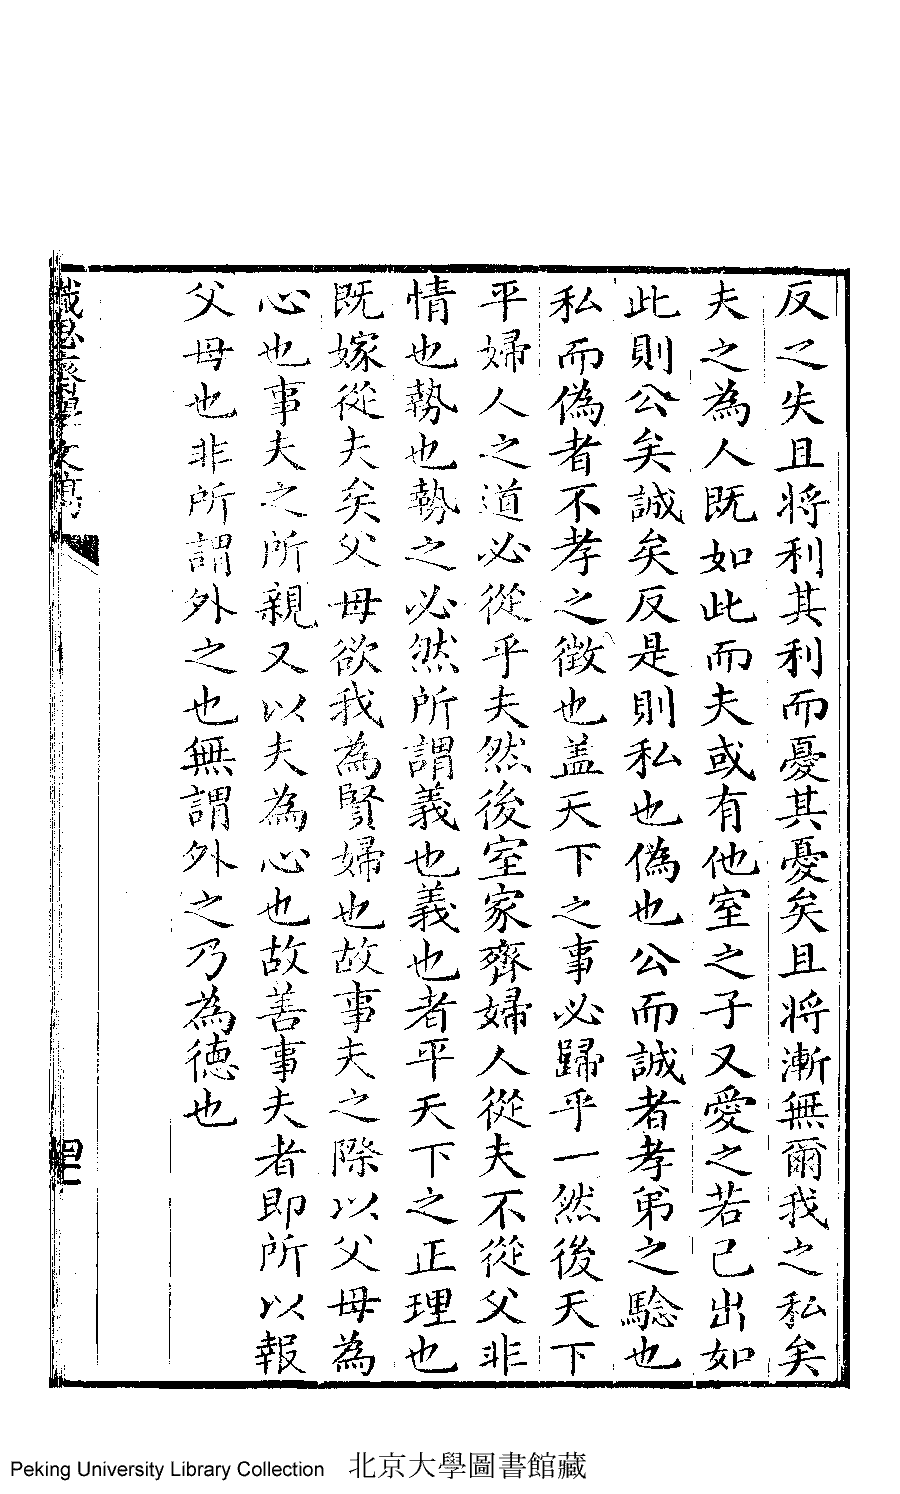 反之失且将利其利而憂其憂矣且將漸無爾我之私矣
夫之為人既如此而夫或有他室之子又愛之若己出如
此則公矣誠矣反是則私也偽也公而誠者孝弟之騐也
私而偽者不孝之徴也盖天下之事必歸乎一然後天下
平婦人之道必從乎夫然後室家齊婦人從夫不從父非
情也勢也勢之必然所謂義也義也者平天下之正理也
既嫁從夫矣父母欲我為賢婦也故事夫之際以父母為
心也事夫之所親又以夫為心也故善事夫者即所以報
父母也非所謂外之也無謂外之乃為德也
Peking University Library Collection 北京大學圖書館藏